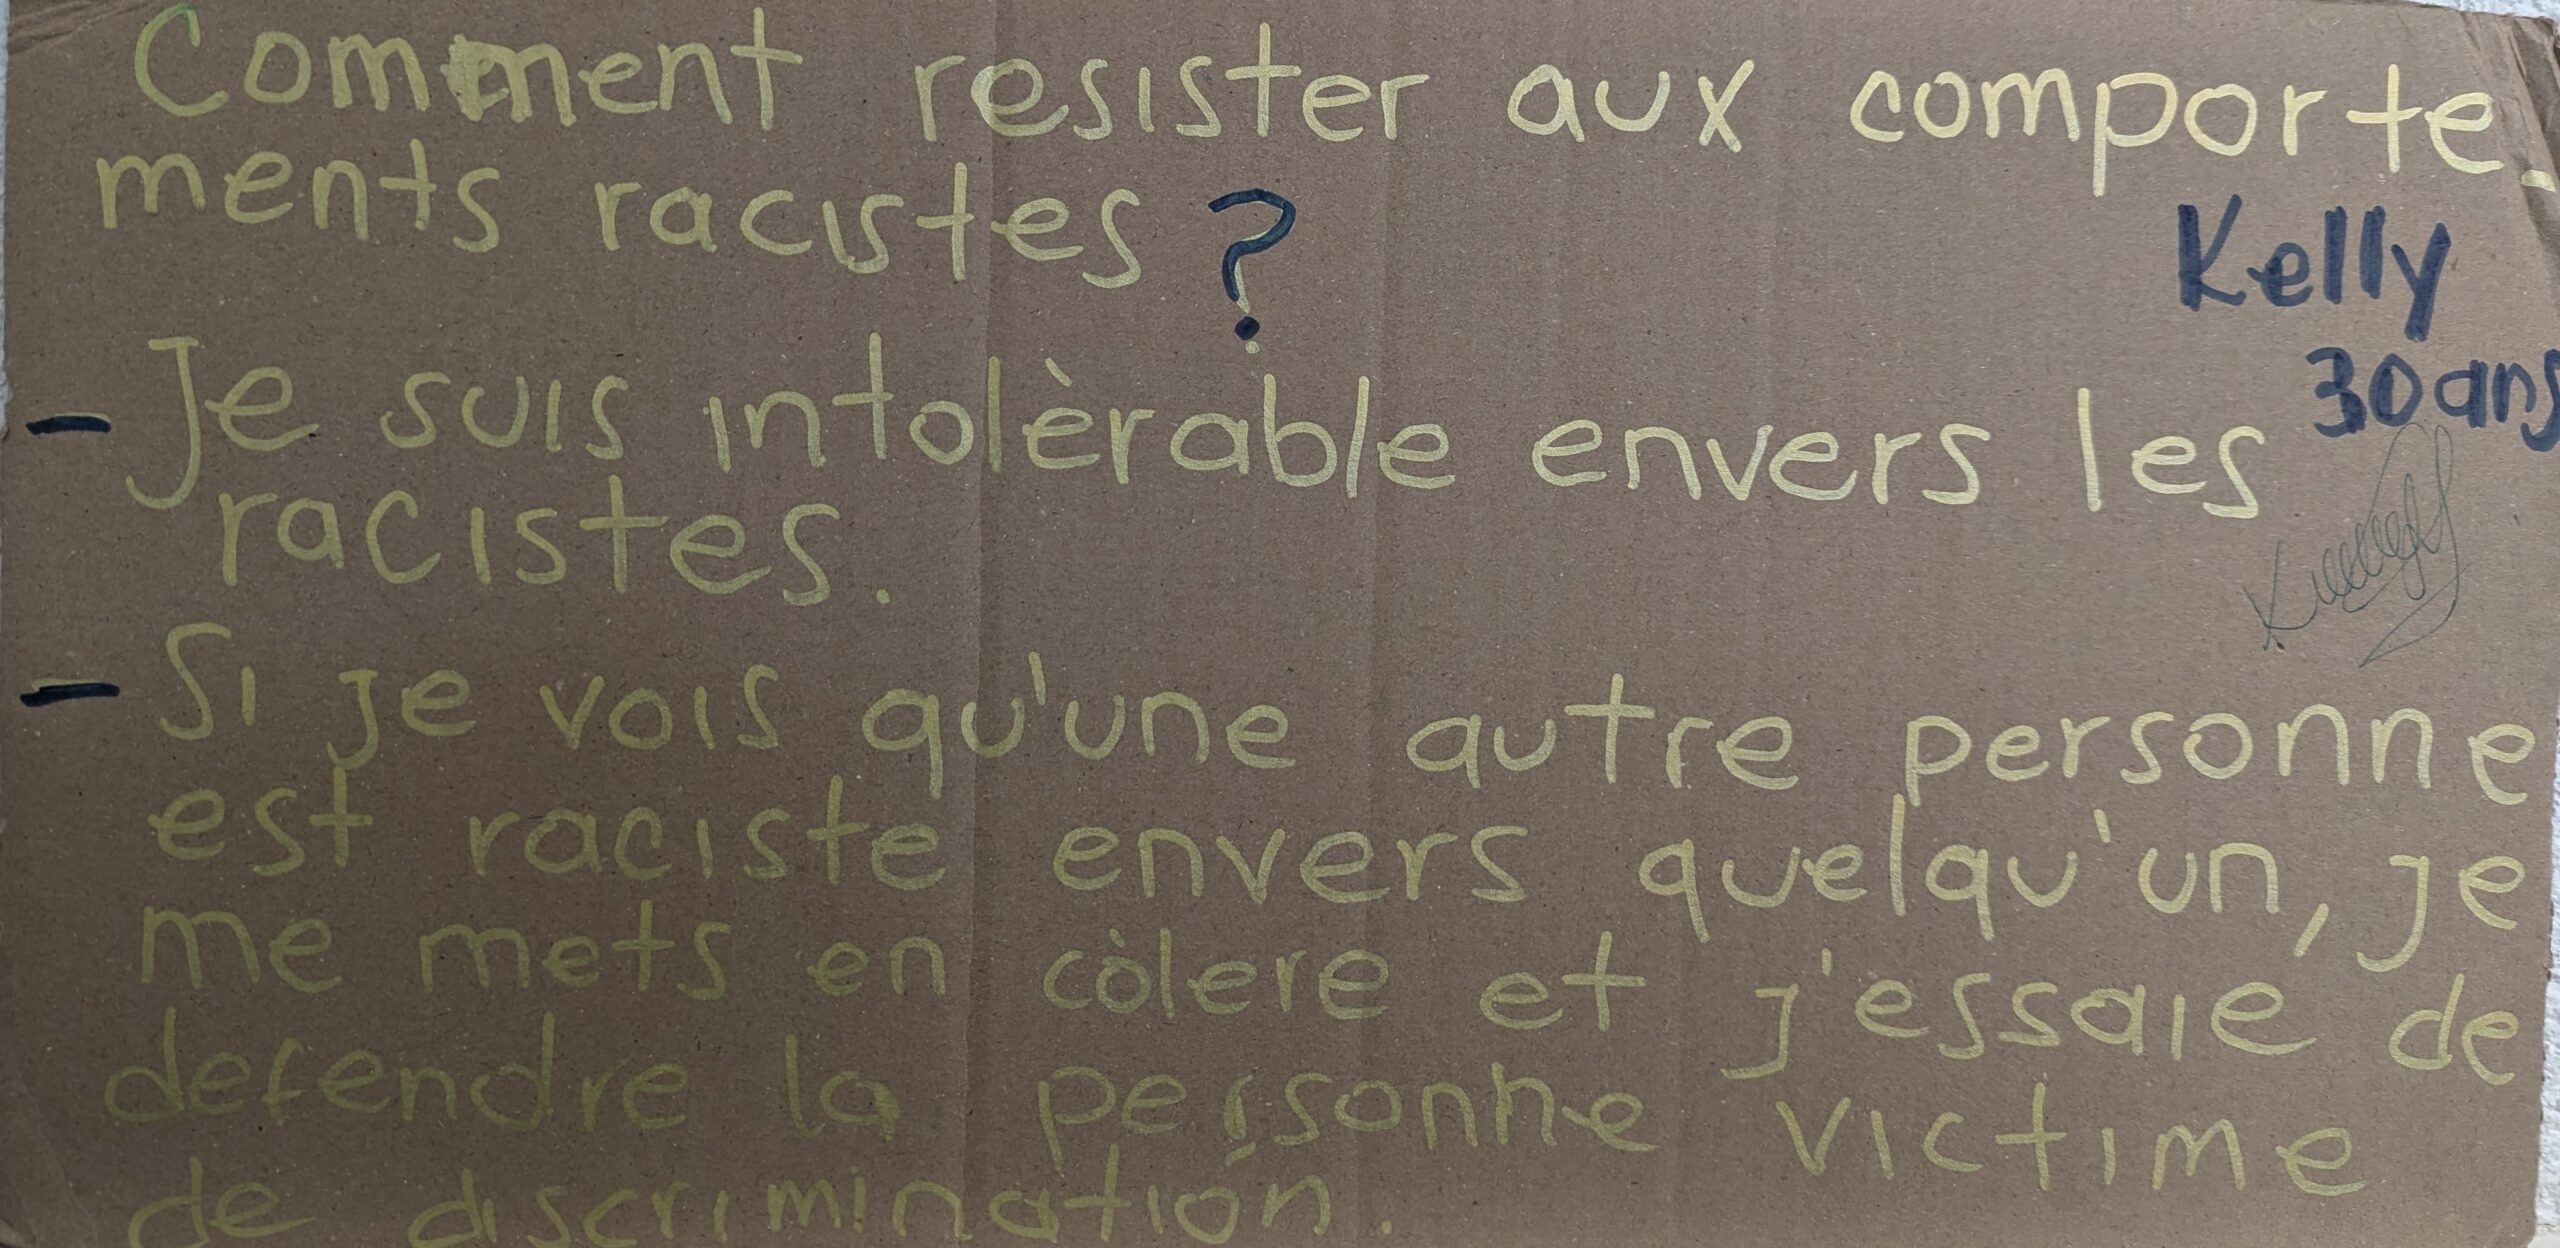 Comment resister aux comporte-
ments racistes ?
Kelly
30 ans
- Je suis intolèrable envers les
racistes.
- Si je vois qu'une autre personne
est raciste envers quelqu'un, je
me mets en còlere et j'essaie de
defendre la personne victime
de discrimination.